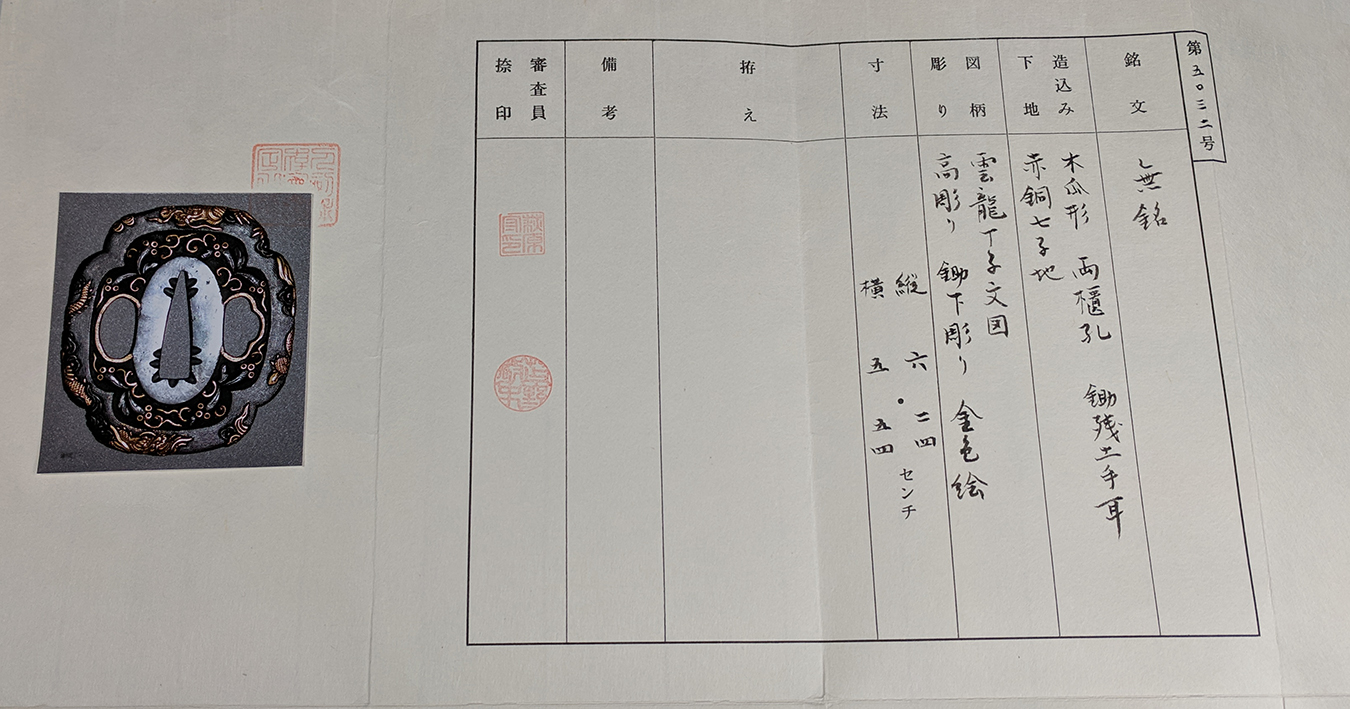 第五〇三二号
銘文
無銘
造込み
下地
木瓜形 両櫃孔 鋤残土手耳
赤銅七子地
図柄
彫り
雲龍丁子文図
高彫り 鋤下彫り 金色絵
寸法
縦 六・二四 センチ
横 五・五四
拵え
備考
審査員
捺印